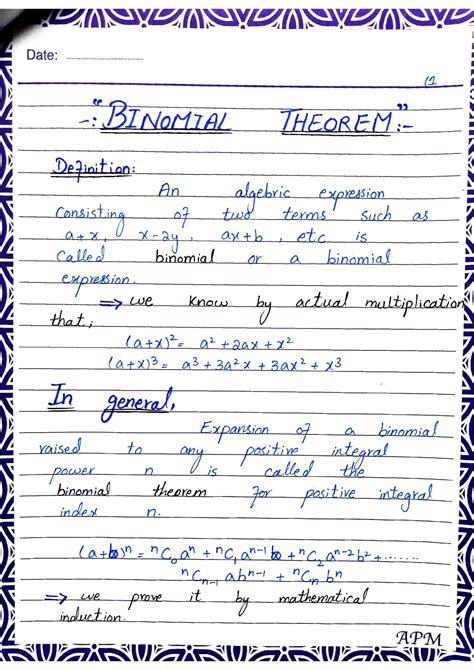 Date:
(1
-: "BINOMIAL THEOREM" :-
Definition:
An algebric expression
Consisting of two terms such as
a+x, x-2y, ax+b, etc is
Called binomial or a binomial
expression.
⇒ we know by actual multiplication
that;
(a+x)² = a² + 2ax + x²
(a+x)³ = a³ + 3a²x + 3ax² + x³
In general,
Expansion of a binomial
raised to any positive integral
power n is called the
binomial theorem for positive integral
index n.
(a+b)ⁿ = ⁿC₀aⁿ + ⁿC₁aⁿ⁻¹b + ⁿC₂aⁿ⁻²b² + .......
ⁿCₙ₋₁ abⁿ⁻¹ + ⁿCₙ bⁿ
⇒ we prove it by mathematical
induction.
APM